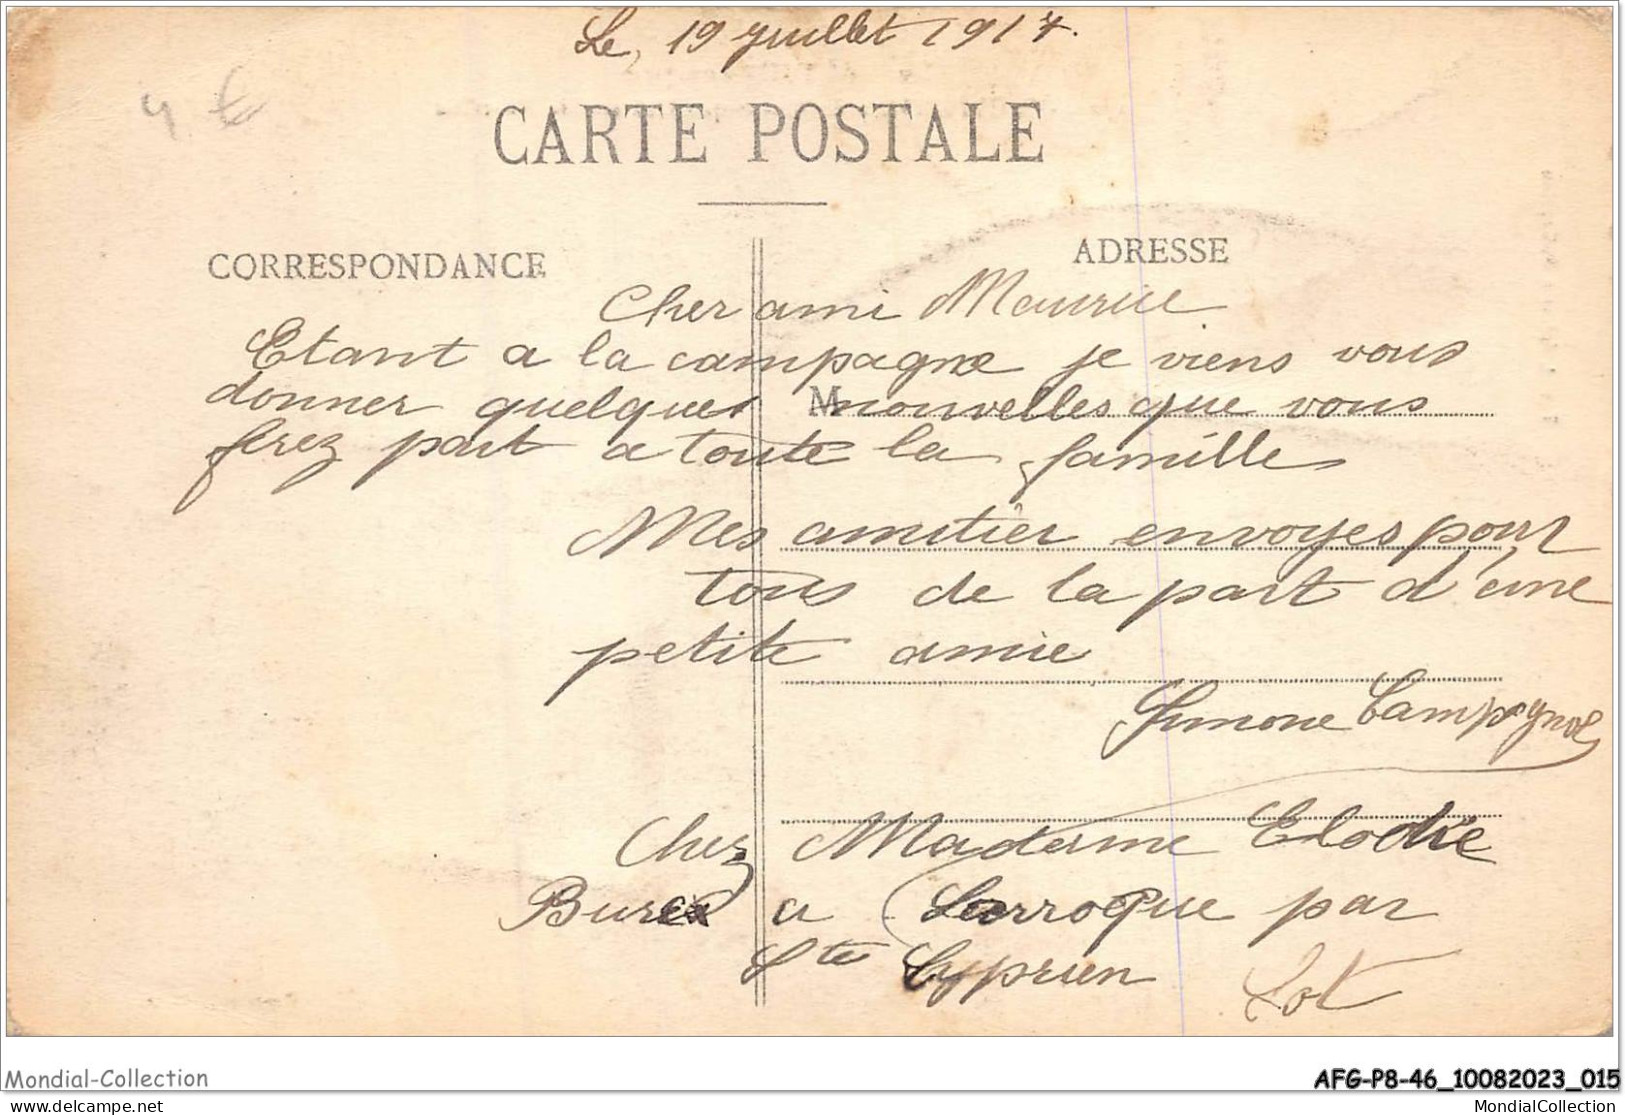 Le, 19 juillet 1917.
4 €
CARTE POSTALE
CORRESPONDANCE
ADRESSE
Cher ami Maurice
Etant a la campagne je viens vous
donner quelques M nouvelles que vous
ferez part a toute la famille
Mes amitier envoyes pour
tous de la part d'une
petite amie
Simone Campagnol
Chez Madame Elodie
a Larroque par
Ste Cyprien Lot
Mondial-Collection
AFG-P8-46_10082023_015
www.delcampe.net
MondialCollection